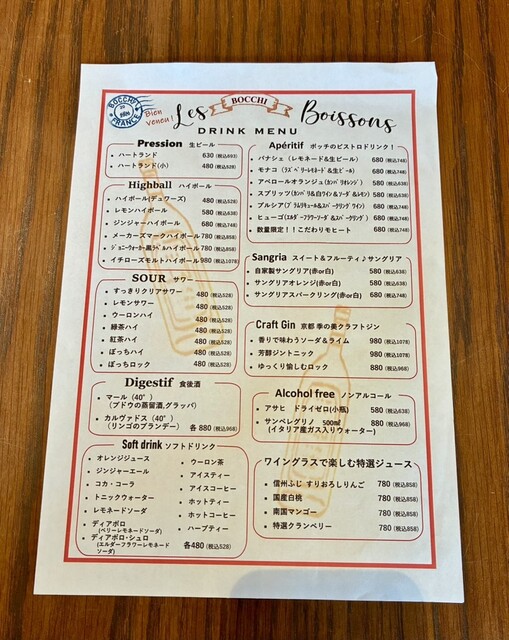 BOCCHI
FRANCE
Bien
vencu!
Les
BOCCHI
Boissons
DRINK MENU
Pression 生ビール
ハートランド 630 (税込693)
ハートランド(小) 480 (税込528)
Highball ハイボール
ハイボール(デュワーズ) 480 (税込528)
レモンハイボール 580 (税込638)
ジンジャーハイボール 680 (税込748)
メーカーズマークハイボール 780 (税込858)
ジョニーウォーカー黒ラベルハイボール 780 (税込858)
イチローズモルトハイボール 980 (税込1078)
SOUR サワー
すっきりクリアサワー 480 (税込528)
レモンサワー 480 (税込528)
ウーロンハイ 480 (税込528)
緑茶ハイ 480 (税込528)
紅茶ハイ 480 (税込528)
ぼっちハイ 480 (税込528)
ぼっちロック 480 (税込528)
Digestif 食後酒
マール(40°)
(ブドウの蒸留酒,グラッパ)
カルヴァドス(40°)
(リンゴのブランデー) 各 880 (税込968)
Soft drink ソフトドリンク
オレンジジュース
ジンジャーエール
コカ・コーラ
トニックウォーター
レモネードソーダ
ディアボロ
(ベリーレモネードソーダ)
ディアボロ・シュロ
(エルダーフラワーレモネード
ソーダ)
ウーロン茶
アイスティー
アイスコーヒー
ホットティー
ホットコーヒー
ハーブティー
各480 (税込528)
Apéritif ボッチのビストロドリンク!
パナシェ (レモネード&生ビール) 680 (税込748)
モナコ (ラズベリーレモネード&生ビール) 680 (税込748)
アペロールオランジュ(カンパリオレンジ) 580 (税込638)
スプリッツ(カンパリ&白ワイン&ソーダ&レモン) 580 (税込638)
プルシア(プラムリキュール&スパークリングワイン) 680 (税込748)
ヒューゴ(エルダーフラワーソーダ&スパークリング) 680 (税込748)
数量限定!!こだわりモヒート 680 (税込748)
Sangria スイート&フルーティ♪サングリア
自家製サングリア(赤or白) 580 (税込638)
サングリアオレンジ(赤or白) 580 (税込638)
サングリアスパークリング(赤or白) 680 (税込748)
Craft Gin 京都 季の美クラフトジン
香りで味わうソーダ&ライム 980 (税込1078)
芳醇ジントニック 980 (税込1078)
ゆっくり愉しむロック 880 (税込968)
Alcohol free ノンアルコール
アサヒ ドライゼロ(小瓶) 580 (税込638)
サンペレグリノ 500㎖ 880 (税込968)
(イタリア産ガス入りウォーター)
ワイングラスで楽しむ特選ジュース
信州ふじ すりおろしりんご 780 (税込858)
国産白桃 780 (税込858)
南国マンゴー 780 (税込858)
特選クランベリー 780 (税込858)